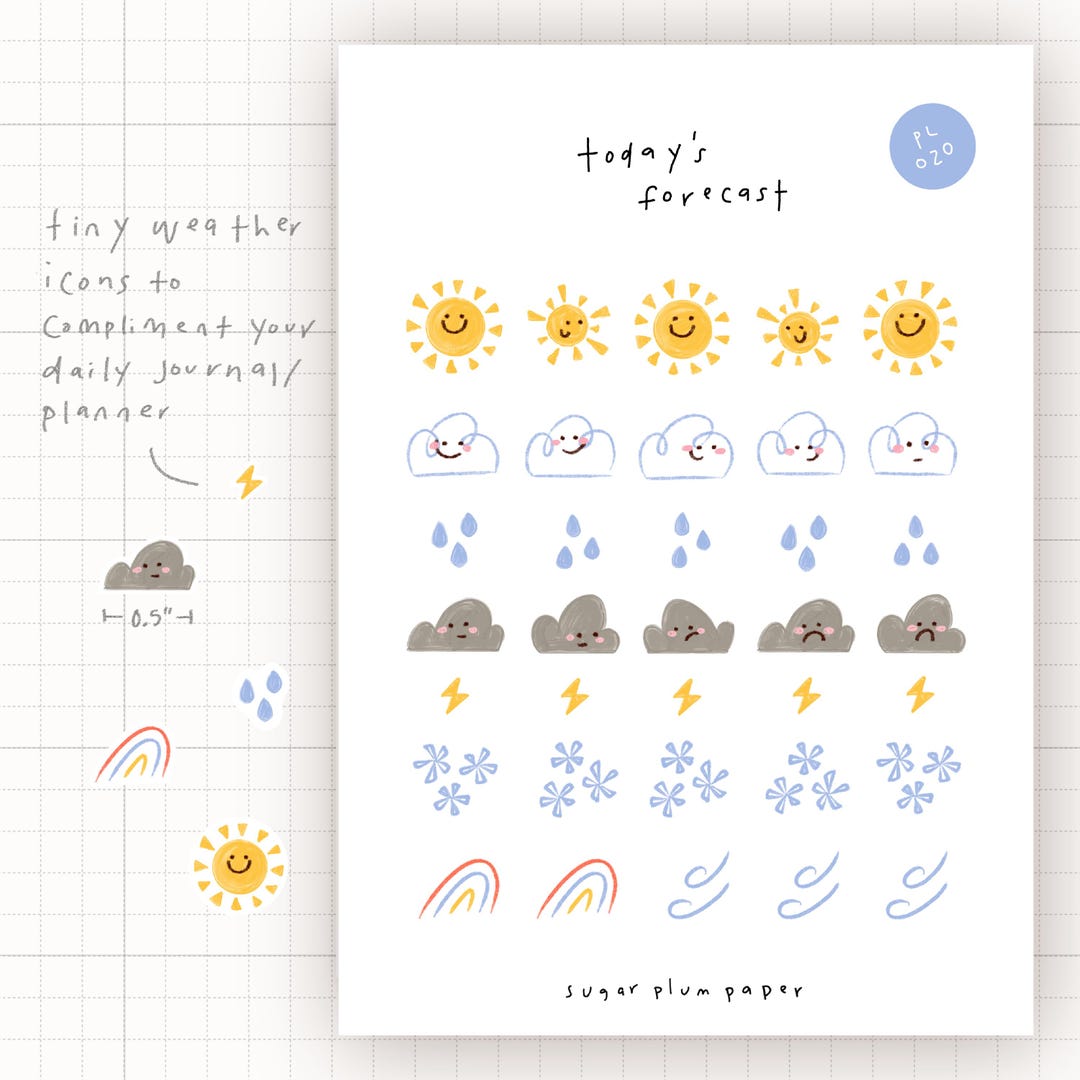 today's
forecast
PL
020
tiny weather
icons to
compliment your
daily journal/
planner
0.5"
sugar plum paper